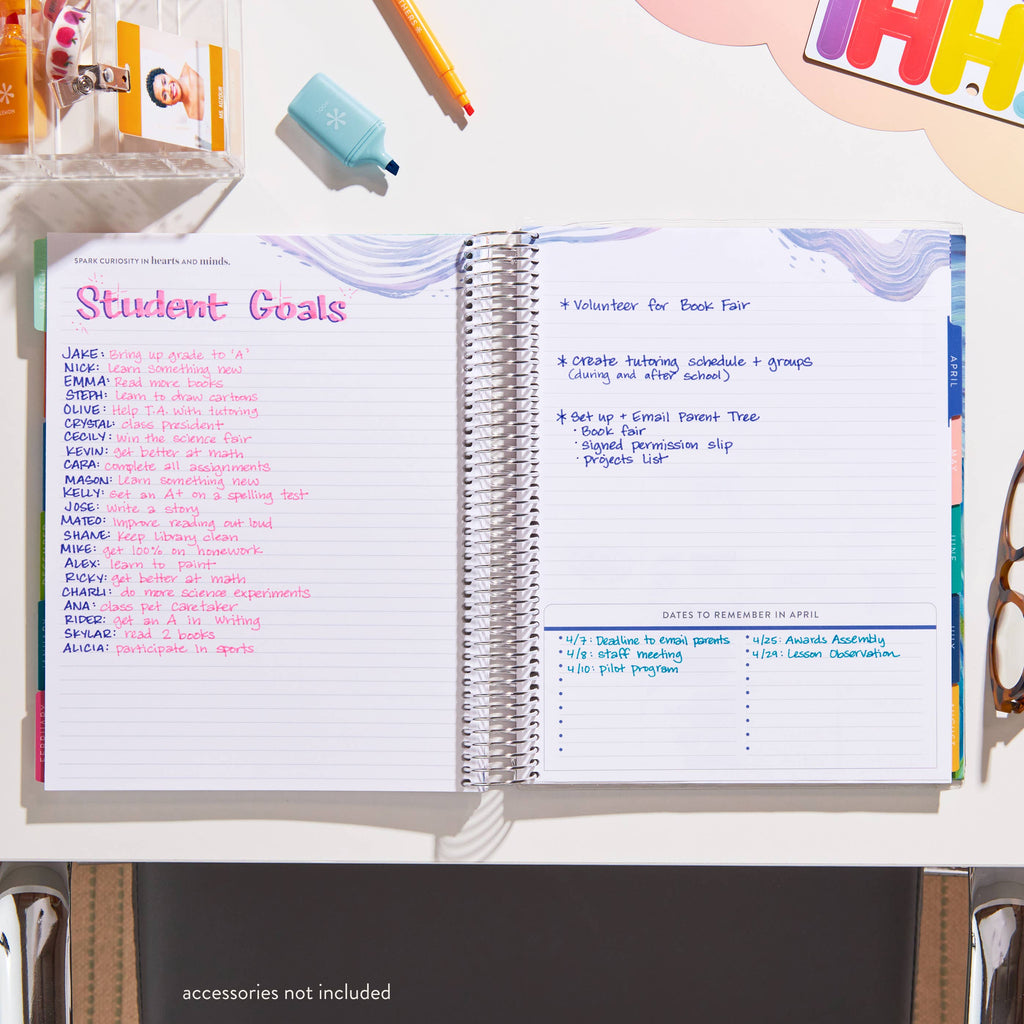 SPARK CURIOSITY IN hearts AND minds.
Student Goals
JAKE: Bring up grade to 'A'
NICK: Learn something new
EMMA: Read more books
STEPH: Learn to draw cartoons
OLIVE: Help T.A. with tutoring
CRYSTAL: class president
CECILY: Win the science fair
KEVIN: get better at math
CARA: complete all assignments
MASON: Learn something new
KELLY: Get an A+ on a spelling test
JOSE: Write a story
MATEO: Improve reading out loud
SHANE: Keep Library clean
MIKE: get 100% on homework
ALEX: learn to paint
RICKY: get better at math
CHARLI: do more science experiments
ANA: class pet caretaker
RIDER: get an A in Writing
SKYLAR: read 2 books
ALICIA: participate in sports
* Volunteer for Book Fair
* Create tutoring schedule + groups
(during and after school)
* Set up + Email Parent Tree
· Book fair
· signed permission slip
· projects List
DATES TO REMEMBER IN APRIL
• 4/7: Deadline to email parents
• 4/8: staff meeting
• 4/10: pilot program
• 4/25: Awards Assembly
• 4/29: Lesson Observation
MARCH
FEBRUARY
APRIL
MAY
JUNE
JULY
accessories not included